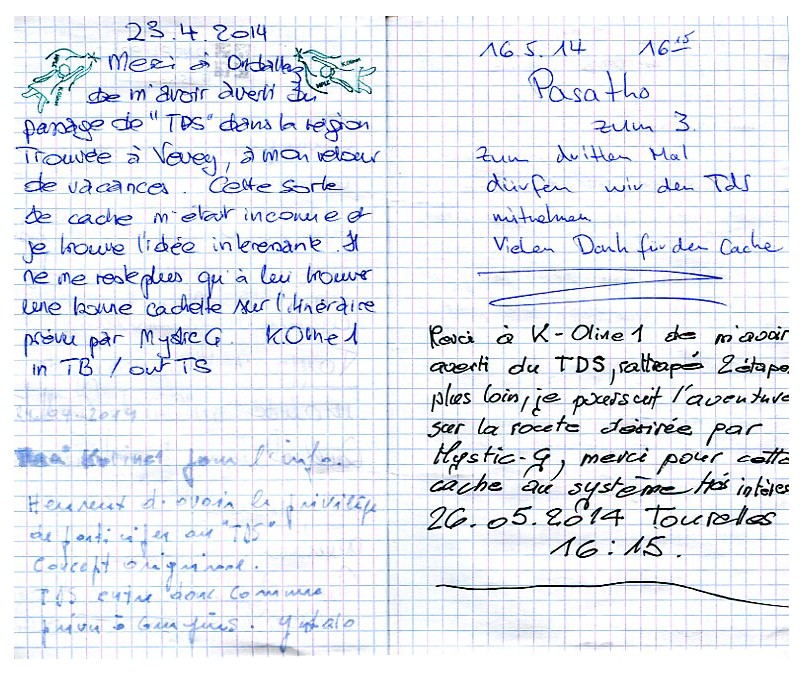 23.4.2014
Merci à Ondallaz
de m'avoir averti du
passage de "TDS" dans la région
Trouvée à Vevey, à mon retour
de vacances. Cette sorte
de cache m'était inconnue et
je trouve l'idée intéressante. Il
ne me reste plus qu'à lui trouver
une bonne cachette sur l'itinéraire
prévu par Mystic G. K.Oline1
in TB / out TS
24.04.2014
pour l'info.
Heureux d'avoir le privilège
de participer au "TDS"
Concept original.
TDS entre donc comme
prévu à
16.5.14 16 15
Pasatho
zum 3.
Zum dritten Mal
dürfen wir den Tds
mitnehmen
Vielen Dank für den Cache
Merci à K-Oline1 de m'avoir
averti du TDS, rattrapé 2 étapes
plus loin, je poursuit l'aventure
sur la route désirée par
Mystic-G, merci pour cette
cache au système très intéres
26.05.2014 Tourelles
16:15.